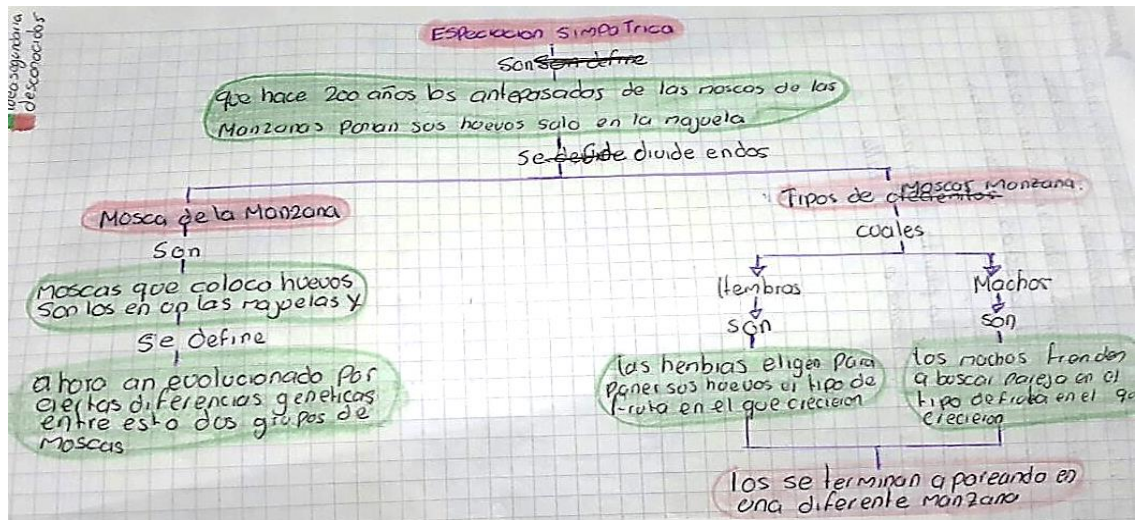 desconocidos
ESPeciacion SimPaTrica
son son define
que hace 200 años los antepasados de las moscas de las
Manzanas ponian sus huevos solo en la majuela
Se define divide en dos
Mosca de la Manzana
Son
moscas que coloco huevos
son los en las majuelas y
se define
ahora an evolucionado por
ciertas diferencias geneticas
entre esto dos grupos de
moscas
Tipos de Moscas Manzana.
cuales
Hembras
son
las henbras eligen para
poner sus huevos el tipo de
fruta en el que crecieron
Machos
son
los machos tienden
a buscar pareja en el
tipo de fruta en el que
crecieron
los se terminan apareando en
una diferente manzana